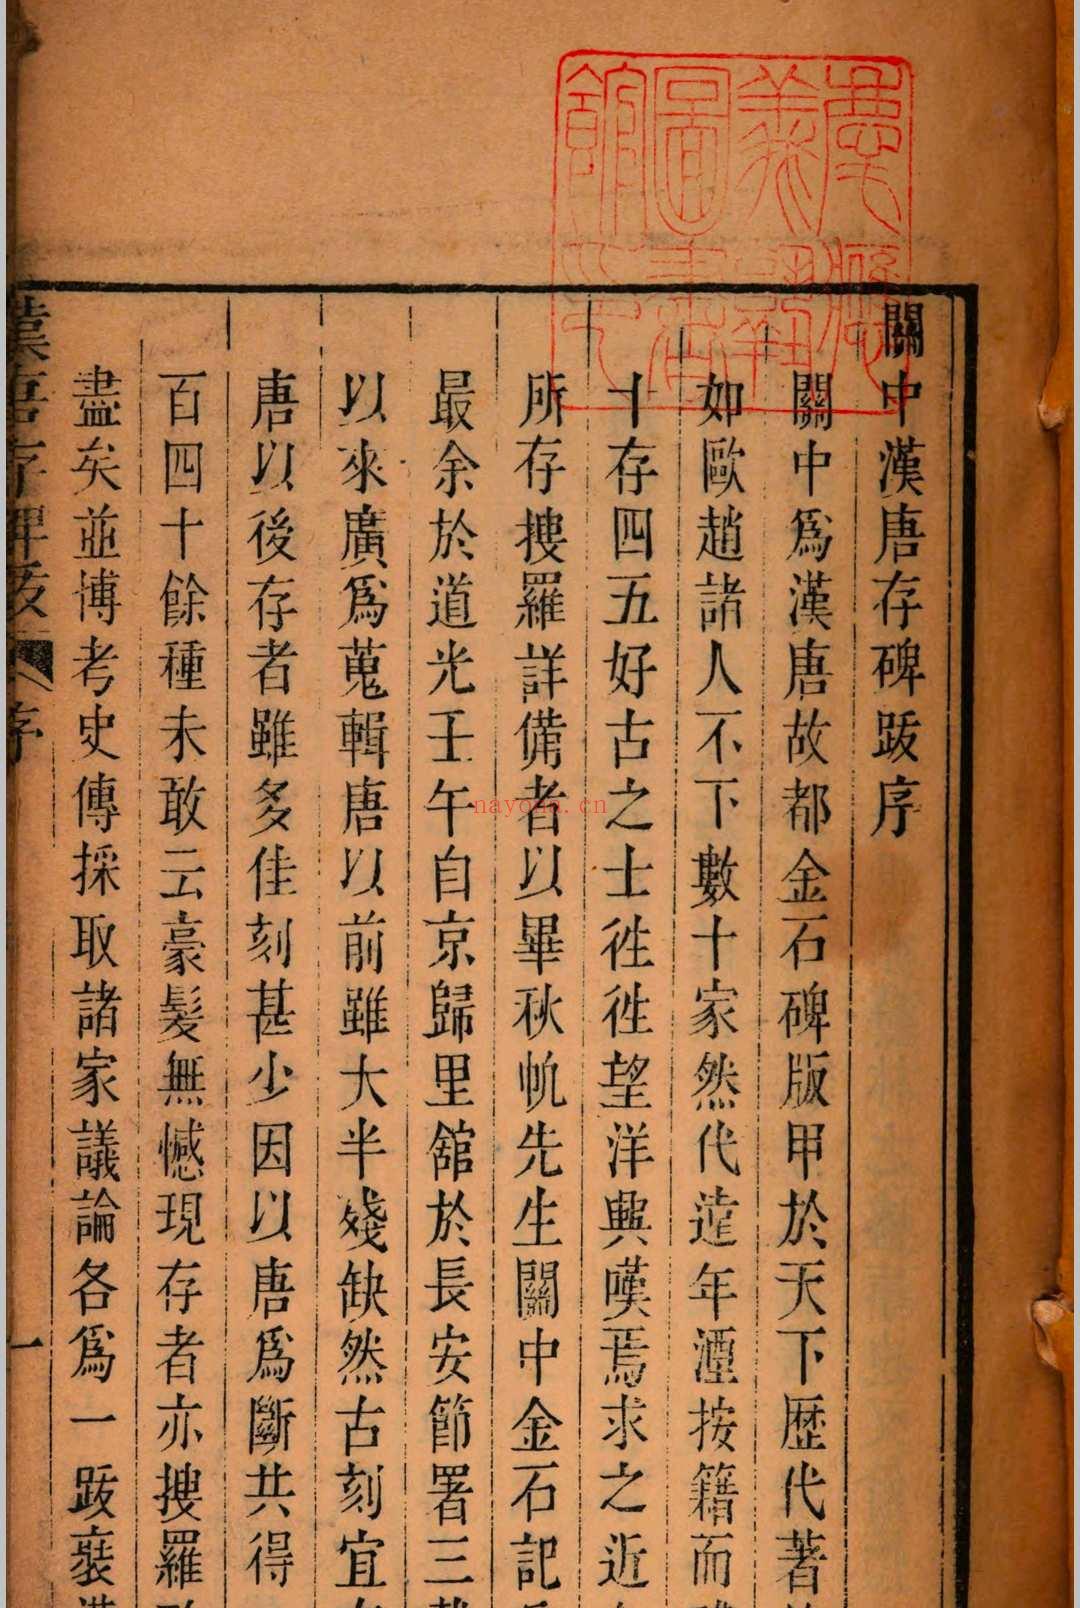 關中漢唐存碑跋序
關中爲漢唐故都金石碑版甲於天下歷代著
如歐趙諸人不下數十家然代遠年湮按籍而
十存四五好古之士往往望洋興嘆焉求之近
所存搜羅詳備者以畢秋帆先生關中金石記
最余於道光壬午自京歸里舘於長安節署三
以來廣爲蒐輯唐以前雖大半殘缺然古刻宜
唐以後存者雖多佳刻甚少因以唐爲斷共得
百四十餘種未敢云豪髮無憾現存者亦搜羅
盡矣並博考史傳採取諸家議論各爲一跋裝
漢唐存碑跋 序 一
nayona.cn